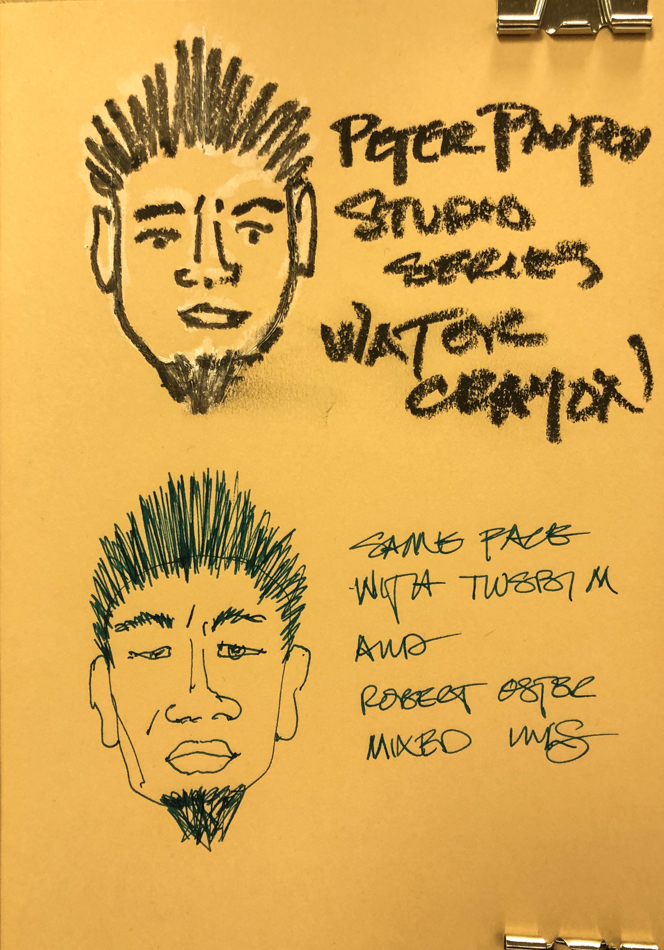 PETER PAUPER
STUDIO
SERIES
WATER
CRAYON
SAME FACE
WITH TWSBI M
AND
ROBERT OSTER
MIXED INKS